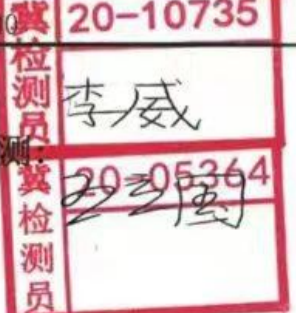 冀检测员
20-10735
李威
测:
冀检测员
20-05364